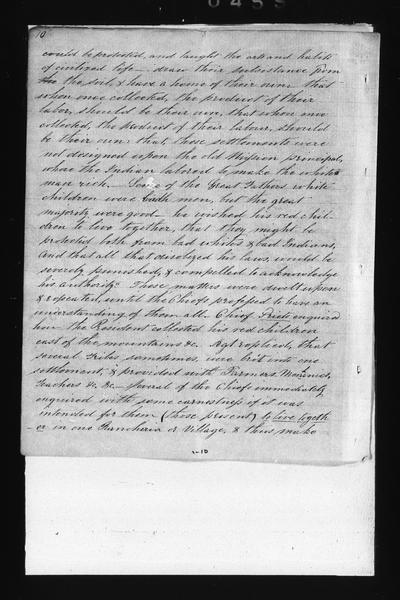 0455
10
could be protected, and taught the arts and habits
of civilized life — draw their subsistance from
the soil, & have a home of their own: that
when once collected, the product of their
labor, should be their own, that when once
collected, the product of their labour, should
be their own: that, these settlements were
not designed upon the old Mission principal,
where the Indian labored to make the white
man rich. Some of the Great Fathers white
children were bad men, but the great
majority were good. he wished his red chil-
dren to live together, that they might be
protected both from bad whites & bad Indians,
And that all that disobeyed his laws, would be
severely punished, & compelled to acknowledge
his authority. These matters were dwelt upon
& repeated, until the Chiefs professed to have an
understanding of them all. Chief Prieto enquired
how the President collected his red children
east of the mountains &c. Agt replied, that
several Tribes sometimes, were bro't into one
settlement, & provided with Farmers, Mechanics,
Teachers &c. &c — Several of the Chiefs immediately
enquired with some earnestness if it was
intended for them (those present) to live togeth-
-er in one Rancheria or Village, & thus make
2-10